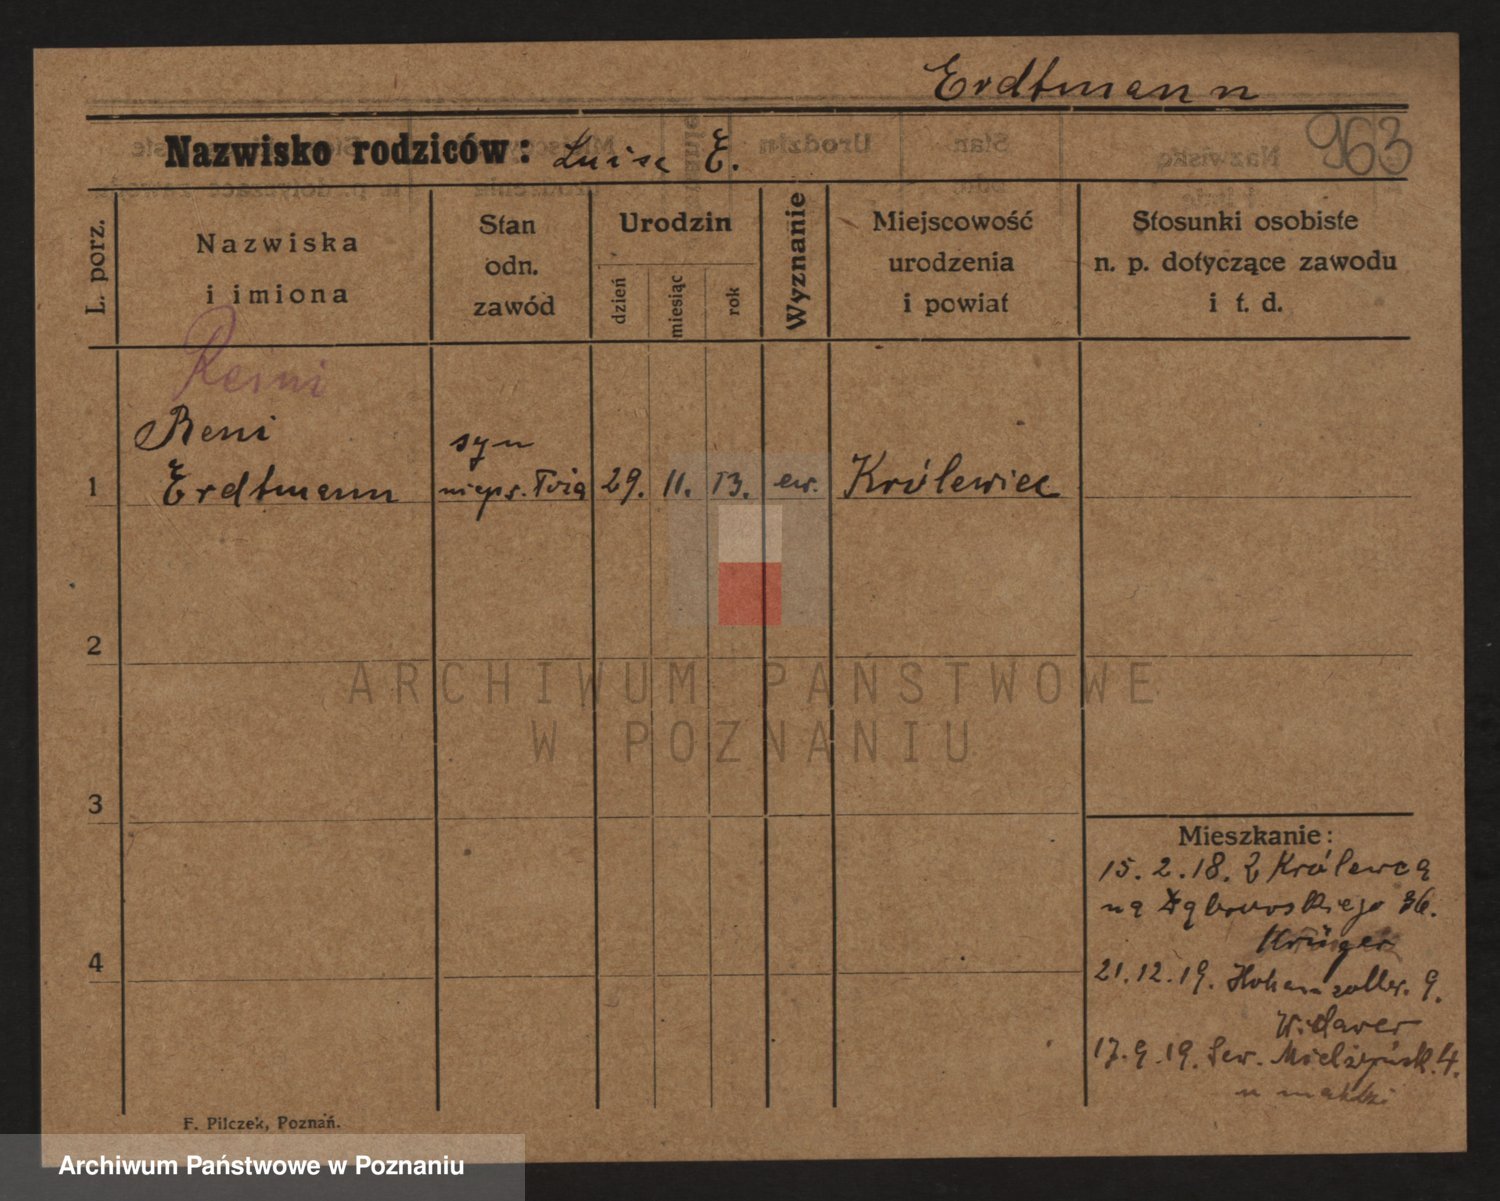 Erdtmann
963
Nazwisko rodziców: Luise E.
L. porz.
Nazwiska
i imiona
Stan
odn.
zawód
Urodzin
dzień
miesiąc
rok
Wyznanie
Miejscowość
urodzenia
i powiat
Stosunki osobiste
n. p. dotyczące zawodu
i t. d.
Remi
Reni
1 Erdtmann
syn
29. 11. 13. ew. Królewiec
2
ARCHIWUM PAŃSTWOWE
W POZNANIU
3
4
Mieszkanie:
15. 2. 18. z Królewca
na 36.
Krüger
21. 12. 19. Hohenzoller. 9.
Widawer
17. 9. 19. Sew. Mielżyńsk. 4.
u matki
F. Pilczek, Poznań.
Archiwum Państwowe w Poznaniu